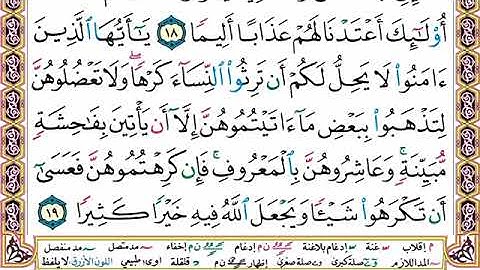 أُو۟لَٰٓئِكَ أَعْتَدْنَا لَهُمْ عَذَابًا أَلِيمًا ١٨ يَٰٓأَيُّهَا ٱلَّذِينَ
ءَامَنُوا۟ لَا يَحِلُّ لَكُمْ أَن تَرِثُوا۟ ٱلنِّسَآءَ كَرْهًا ۖ وَلَا تَعْضُلُوهُنَّ
لِتَذْهَبُوا۟ بِبَعْضِ مَآ ءَاتَيْتُمُوهُنَّ إِلَّآ أَن يَأْتِينَ بِفَٰحِشَةٍ
مُّبَيِّنَةٍ ۚ وَعَاشِرُوهُنَّ بِٱلْمَعْرُوفِ ۚ فَإِن كَرِهْتُمُوهُنَّ فَعَسَىٰٓ
أَن تَكْرَهُوا۟ شَيْـًٔا وَيَجْعَلَ ٱللَّهُ فِيهِ خَيْرًا كَثِيرًا ١٩
م إقلاب غنة إدغام بلاغنة إدغام إخفاء مد متصل مد منفصل
المد اللازم صلة كبرى صلة صغرى إظهار قلقلة طبيعي اللون الأزرق لا يلفظ